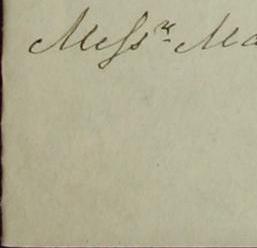 Messrs Ma